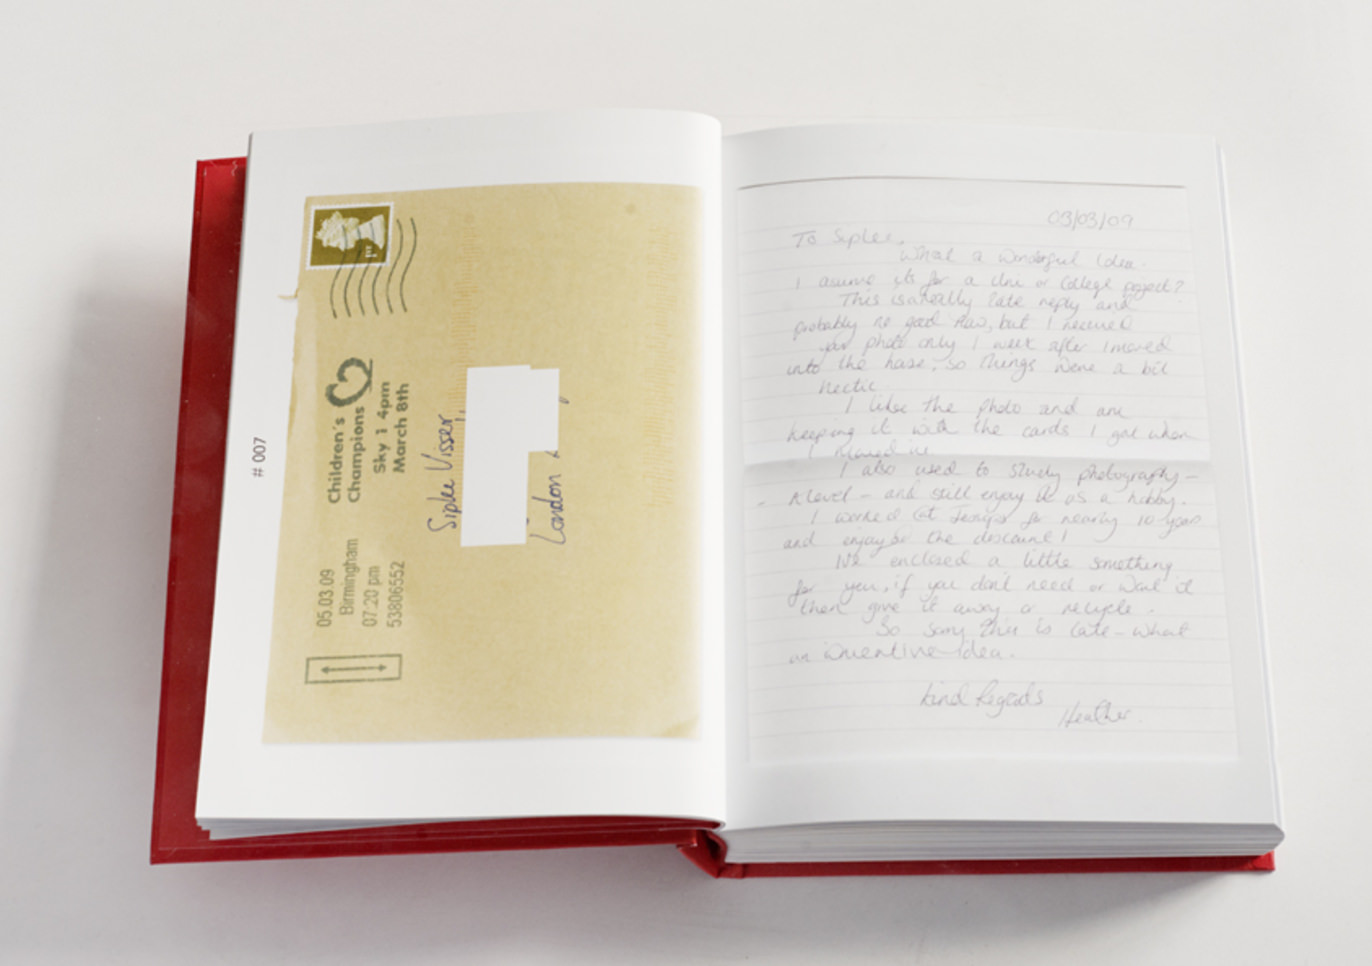 # 007
1st
Children's
Champions
Sky 1 4pm
March 8th
05.03.09
Birmingham
07:20 pm
53806552
Siplee Visser
London
03/03/09
To Siplee,
What a wonderful idea.
I asume its for a Uni or College project?
This is a really late reply and
probably no good now, but I received
your photo only 1 week after I moved
into the house, so things were a bit
hectic.
I like the photo and am
keeping it with the cards I got when
I moved in.
I also used to study photography -
- A level - and still enjoy it as a hobby.
I worked at Jessops for nearly 10 years
and enjoyed the discount!
I've enclosed a little something
for you, if you don't need or want it
then give it away or recycle.
So sorry this is late - what
an inventive idea.
Kind Regards
Heather.